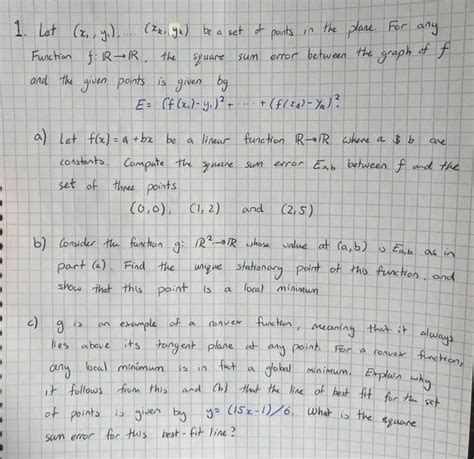 1. Let (x₁, y₁), ... (xₖ, yₖ) be a set of points in the plane. For any
Function f: ℝ→ℝ, the square sum error between the graph of f
and the given points is given by
E = (f(x₁)-y₁)² + ... + (f(xₖ)-yₖ)².
a) Let f(x) = a + bx be a linear function ℝ→ℝ where a & b are
constants. Compute the square sum error Ea,b between f and the
set of three points
(0,0), (1,2) and (2,5)
b) Consider the function g: ℝ²→ℝ whose value at (a,b) is Ea,b as in
part (a). Find the unique stationary point of this function, and
show that this point is a local minimum
c) g is an example of a convex function, meaning that it always
lies above its tangent plane at any point. For a convex function,
any local minimum is in fact a global minimum. Explain why
it follows from this and (b) that the line of best fit for the set
of points is given by y = (15x-1)/6. What is the square
sum error for this best-fit line?